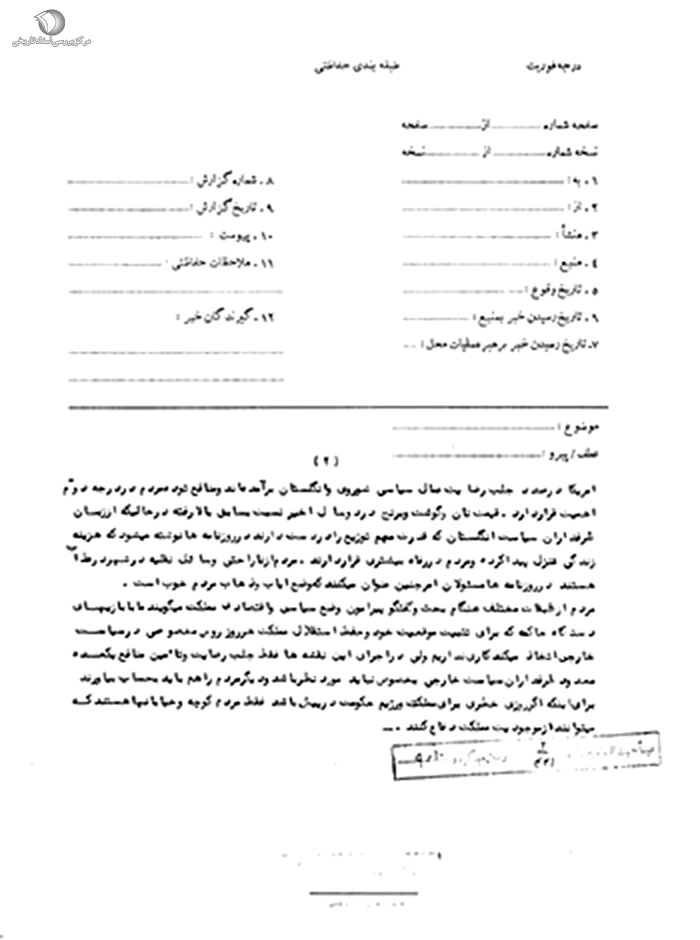 مرکز بررسی اسناد تاریخی
درجه فوریت
طبقه بندی حفاظتی
صفحه شماره ........ از ........ صفحه
نسخه شماره ........ از ........ نسخه
۱ ـ به :
۲ ـ از :
۳ ـ منشأ :
۴ ـ منبع :
۵ ـ تاریخ وقوع :
۶ ـ تاریخ رسیدن خبر بمنبع :
۷ـ تاریخ رسیدن خبر برهبر عملیات محل :
۸ ـ شماره گزارش :
۹ ـ تاریخ گزارش :
۱۰ ـ پیوست :
۱۱ ـ ملاحظات حفاظتی :
۱۲ ـ گیرندگان خبر :
موضوع :
عطف / پیرو :
(۲)
امریکا درصدد جلب رضایت عمال سیاسی شوروی وانگلستان برآمده‌اند ومنافع توده مردم در درجه دوم
اهمیت قرار دارد . قیمت نان وگوشت وبرنج در دو سال اخیر نسبت بسابق بالا رفته در حالیکه از زبان
طرفداران سیاست انگلستان که قدرت مهم توزیع را در دست دارند در روزنامه ها نوشته میشود که هزینه
زندگی تنزل پیدا کرده ومردم در رفاه بیشتری قرار دارند . مردم از ناراحتی وسائل نقلیه در شهر
هستند در روزنامه ها مسئولان امر چنین عنوان میکنند که وضع ایاب وذهاب مردم خوب است .
مردم از طبقات مختلف هنگام بحث وگفتگو پیرامون وضع سیاسی واقتصادی مملکت میگویند ما با بازیهای
دستگاه حاکمه که برای تثبیت موقعیت خود وحفظ استقلال مملکت هر روز روس مخصوصی در سیاست
خارجی اتخاذ میکند کاری نداریم ولی در اجرای این نقشه ها فقط جلب رضایت وتامین منافع یکعده
معدود طرفداران سیاست خارجی بخصوص نباید مورد نظر باشد و دیگر مردم را هم باید بحساب بیاورند
برای اینکه اگر روزی خطری برای مملکت ورژیم حکومت در پیش باشد فقط مردم کوچه وخیابانها هستند که
میتوانند از موجودیت مملکت دفاع کنند .